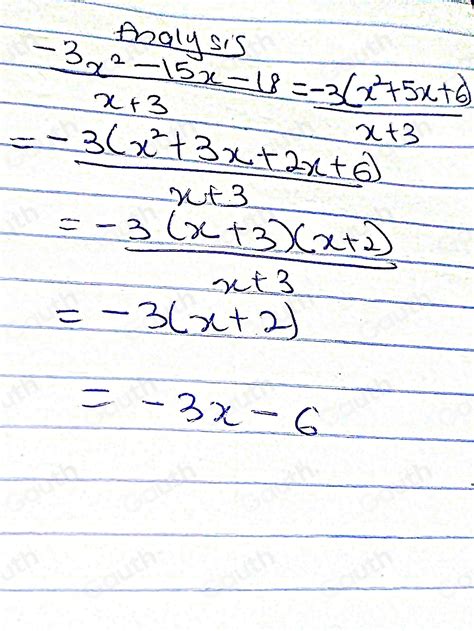 Analysis
-3x² -15x -18 = -3(x²+5x+6)
x+3 x+3
= -3(x²+3x+2x+6)
x+3
= -3(x+3)(x+2)
x+3
= -3(x+2)
= -3x-6